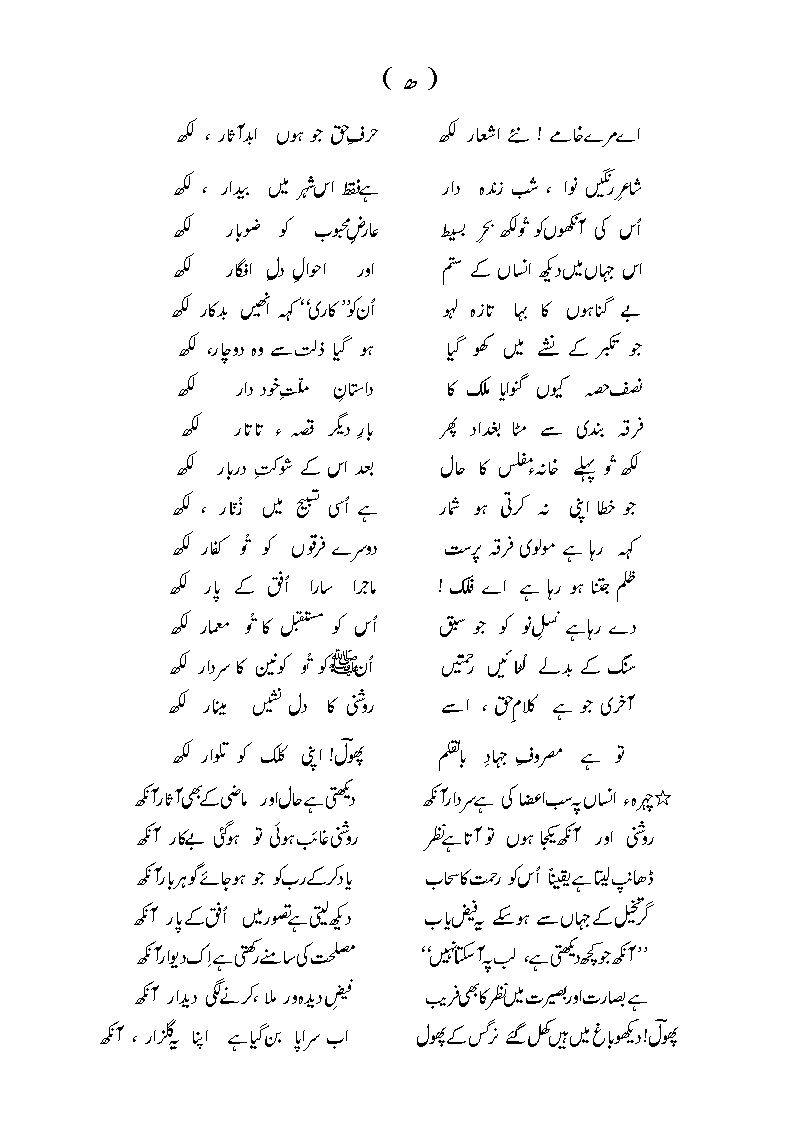 ( ھ )
اے مرے خامے ! نئے اشعار لکھ حرفِ حق جو ہوں ابد آثار ، لکھ
شاعرِ رنگیں نوا ، شب زندہ دار ہے فقط اس شہر میں بیدار ، لکھ
اُس کی آنکھوں کو تُو لکھ بحرِ بسیط عارضِ محبوب کو ضوبار لکھ
اس جہاں میں دیکھ انساں کے ستم اور احوالِ دل افگار لکھ
بے گناہوں کا بہا تازہ لہو اُن کو ’’کاری‘‘ کہہ انھیں بدکار لکھ
جو تکبر کے نشے میں کھو گیا ہو گیا ذلت سے وہ دوچار، لکھ
نصف حصہ کیوں گنوایا ملک کا داستانِ ملّتِ خود دار لکھ
فرقہ بندی سے مٹا بغداد پھر بارِ دیگر قصہ ء تاتار لکھ
لکھ تُو پہلے خانہء مفلس کا حال بعد اس کے شوکتِ دربار لکھ
جو خطا اپنی نہ کرتی ہو شمار ہے اُسی تسبیح میں زُنّار ، لکھ
کہہ رہا ہے مولوی فرقہ پرست دوسرے فرقوں کو تُو کفار لکھ
ظلم جتنا ہو رہا ہے اے فلک ! ماجرا سارا اُفق کے پار لکھ
دے رہا ہے نسلِ نو کو جو سبق اُس کو مستقبل کا تُو معمار لکھ
سنگ کے بدلے لُٹائیں رحمتیں اُن ﷺ کو تُو کونین کا سردار لکھ
آخری جو ہے کلامِ حق ، اسے روشنی کا دل نشیں مینار لکھ
تو ہے مصروفِ جہادِ بالقلم پھولؔ! اپنی کلک کو تلوار لکھ
☆چہرہء انساں پہ سب اعضا کی ہے سردار آنکھ دیکھتی ہے حال اور ماضی کے بھی آثار آنکھ
روشنی اور آنکھ یکجا ہوں تو آتا ہے نظر روشنی غائب ہوئی تو ہوگئی بےکار آنکھ
ڈھانپ لیتا ہے یقیناً اُس کو رحمت کا سحاب یاد کرکے رب کو جو ہو جائے گوہر بار آنکھ
گر تخیل کے جہاں سے ہو سکے یہ فیض یاب دیکھ لیتی ہے تصور میں اُفق کے پار آنکھ
’’آنکھ جو کچھ دیکھتی ہے، لب پہ آ سکتا نہیں‘‘ مصلحت کی سامنے رکھتی ہے اِک دیوار آنکھ
ہے بصارت اور بصیرت میں نظر کا بھی فریب فیضِ دیدہ ور ملا ،کرنے لگی دیدار آنکھ
پھولؔ! دیکھو باغ میں ہیں کھل گئے نرگس کے پھول اب سراپا بن گیا ہے اپنا یہ گلزار ، آنکھ